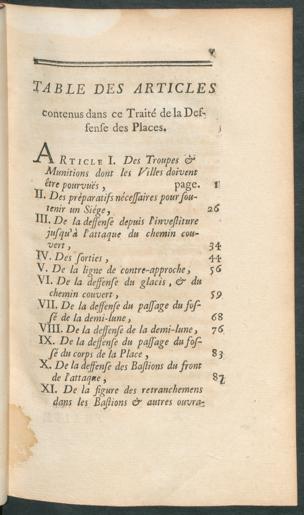 v
TABLE DES ARTICLES
contenus dans ce Traité de la Def-
fense des Places.
ARTICLE I. Des Troupes &
Munitions dont les Villes doivent
être pourvuës, page. 1
II. Des préparatifs nécessaires pour sou-
tenir un Siége, 26
III. De la deffense depuis l'investiture
jusqu'à l'attaque du chemin cou-
vert, 34
IV. Des sorties, 44
V. De la ligne de contre-approche, 56
VI. De la deffense du glacis, & du
chemin couvert, 59
VII. De la deffense du passage du fos-
sé de la demi-lune, 68
VIII. De la deffense de la demi-lune, 76
IX. De la deffense du passage du fos-
sé du corps de la Place, 83
X. De la deffense des Bastions du front
de l'attaque, 87
XI. De la figure des retranchemens
dans les Bastions & autres ouvra-